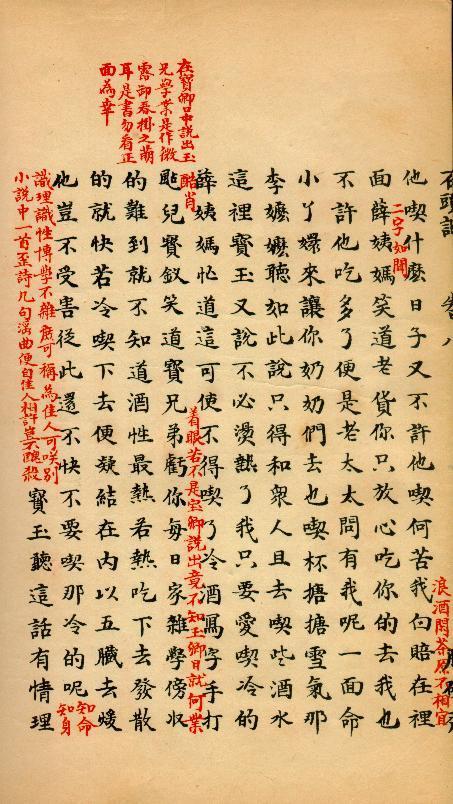 石頭記 卷八
浪酒閒茶原不相宜
他喫什麼日子又不許他喫何苦我白賠在裡
二字如聞
面薛姨媽笑道老貨你只放心吃你的去我也
不許他吃多了便是老太太問有我呢一面命
小丫嬛來讓你奶奶們去也喫杯搪搪雪氣那
李嬤嬤聽如此說只得和衆人且去喫些酒水
這裡寶玉又說不必燙熱了我只要愛喫冷的
薛姨媽忙道這可使不得喫了冷酒寫字手打
酷肖
着眼若不是宝卿說出竟不知玉卿日就何業
在寳卿口中說出玉
兄學業是作微
露卸春掛之萌
耳是書勿看正
面為幸
颭兒寳釵笑道寳兄弟虧你每日家雜學傍収
的難到就不知道酒性最熱若熱吃下去發散
的就快若冷喫下去便凝結在內以五臟去煖
他豈不受害從此還不快不要喫那冷的呢
知命
知身
識理識性博學不雜庶可稱為佳人可笑別
小說中一首歪詩几句淫曲便自佳人相許豈不醜殺
寳玉聽這話有情理